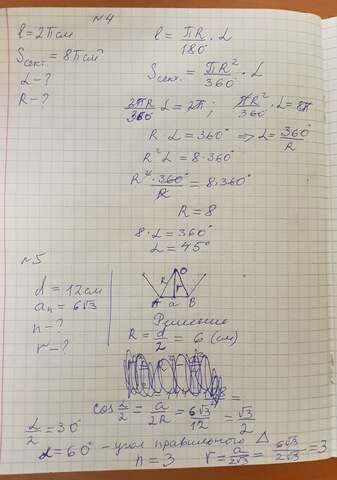 №4
l = 2π см
l = πR/180° · α
Sсект. = 8π см²
Sсект. = πR²/360° · α
α - ?
R - ?
2πR/360 α = 2π ; πR²/360° · α = 8π
R · α = 360° ⇒ α = 360°/R
R² α = 8·360°
R² · 360°/R = 8·360°
R = 8
8 · α = 360°
α = 45°
№5
d = 12 см
aₙ = 6√3
n - ?
r - ?
O
R r
A a B
Решение
R = d/2 = 6 (см)
cos α/2 = a/2R = 6√3/12 = √3/2
α/2 = 30°
α = 60° - угол правильного △
n = 3
r = a/2√3 = 6√3/2√3 = 3